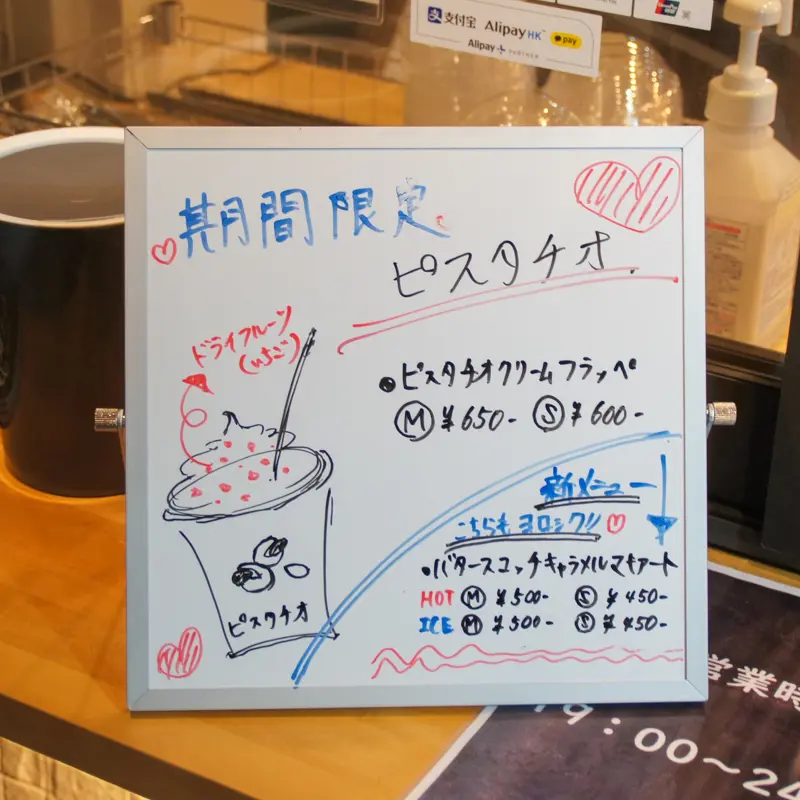 支付宝 AlipayHK pay
Alipay+ PARTNER
期間限定
ピスタチオ.
ドライフルーツ
(いちご)
●ピスタチオクリームフラッペ
Ⓜ ¥650- Ⓢ ¥600-
新メニュー
こちらもヨロシク!!
•バタースコッチキャラメルマキアート
HOT Ⓜ ¥500- Ⓢ ¥450-
ICE Ⓜ ¥500- Ⓢ ¥450-
ピスタチオ
営業時
19:00～24